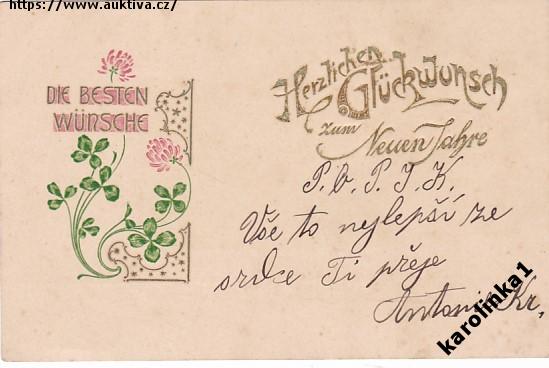 https://www.auktiva.cz/
DIE BESTEN
WÜNSCHE
Herzlichen
Glückwunsch
zum Neuen Jahre
P. v. P. T. K.
Vše to nejlepší ze
srdce Ti přeje
Antonín Kr.
karolinka1